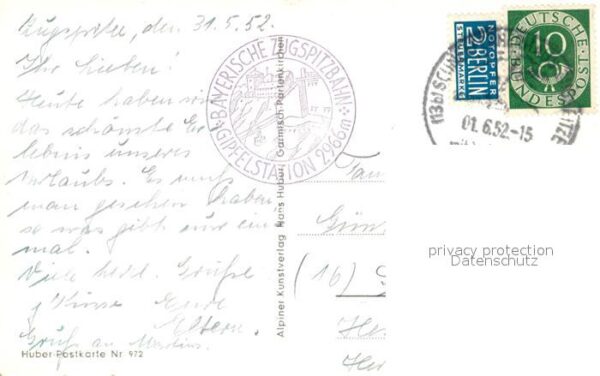 Zugspitze, den 31.5.52.
Ihr Lieben!
Heute haben wir
das schönste Er-
lebnis unseres
Urlaubs. Es muß
man gesehen haben
so was gibt nur ein
mal.
Viele herzl. Grüße
u Küsse Eure
Eltern.
Gruß an
Huber-Postkarte Nr 972
BAYERISCHE ZUGSPITZBAHN
GIPFELSTATION 2966m
Alpiner Kunstverlag Hans Huber, Garmisch-Partenkirchen
NOTOPFER
2 BERLIN
STEUERMARKE
DEUTSCHE BUNDESPOST
10
(13b)
01.6.52.-15
Fam
Gün
(16)
He
He
privacy protection
Datenschutz